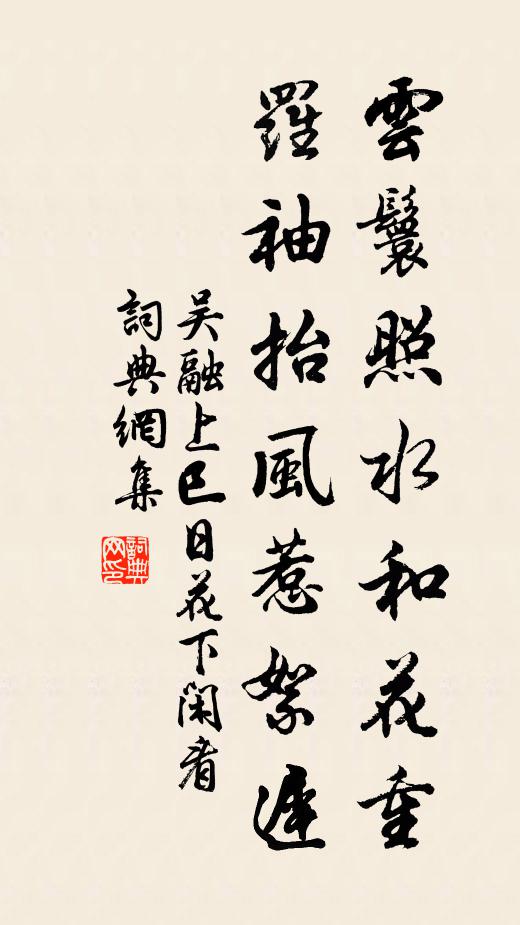 雲鬟照水和花重
羅袖抬風惹絮遲
吳融上巳日花下閑看
詞典網集
詞典网印